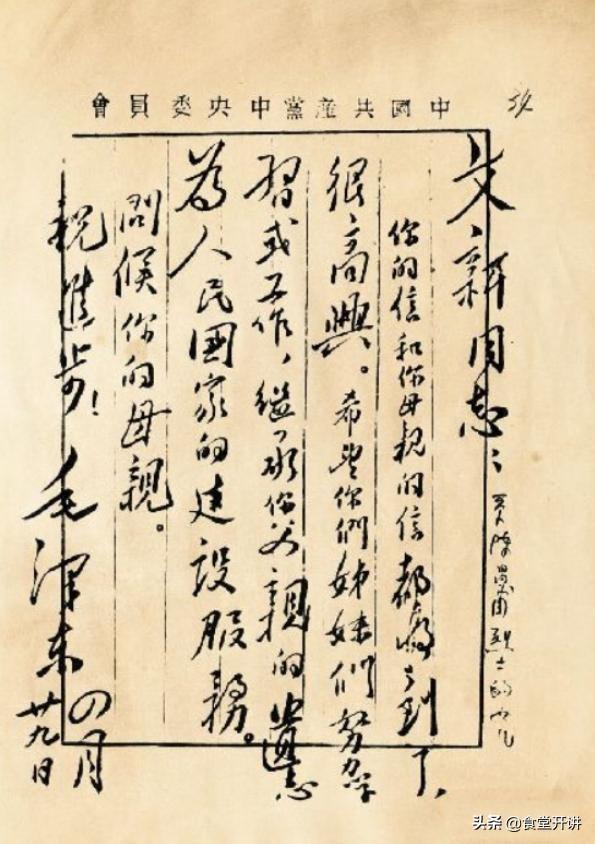 中國共產黨中央委員會
文新同志：
烈士的女儿
你的信和你母親的信都收到了、
很高興。希望你們姊妹們努力學
習或工作、繼承你父親的遺志
為人民國家的建設服務。
問候你的母親。
祝進步！
毛澤東
四月
廿九日
头条 @食堂开讲